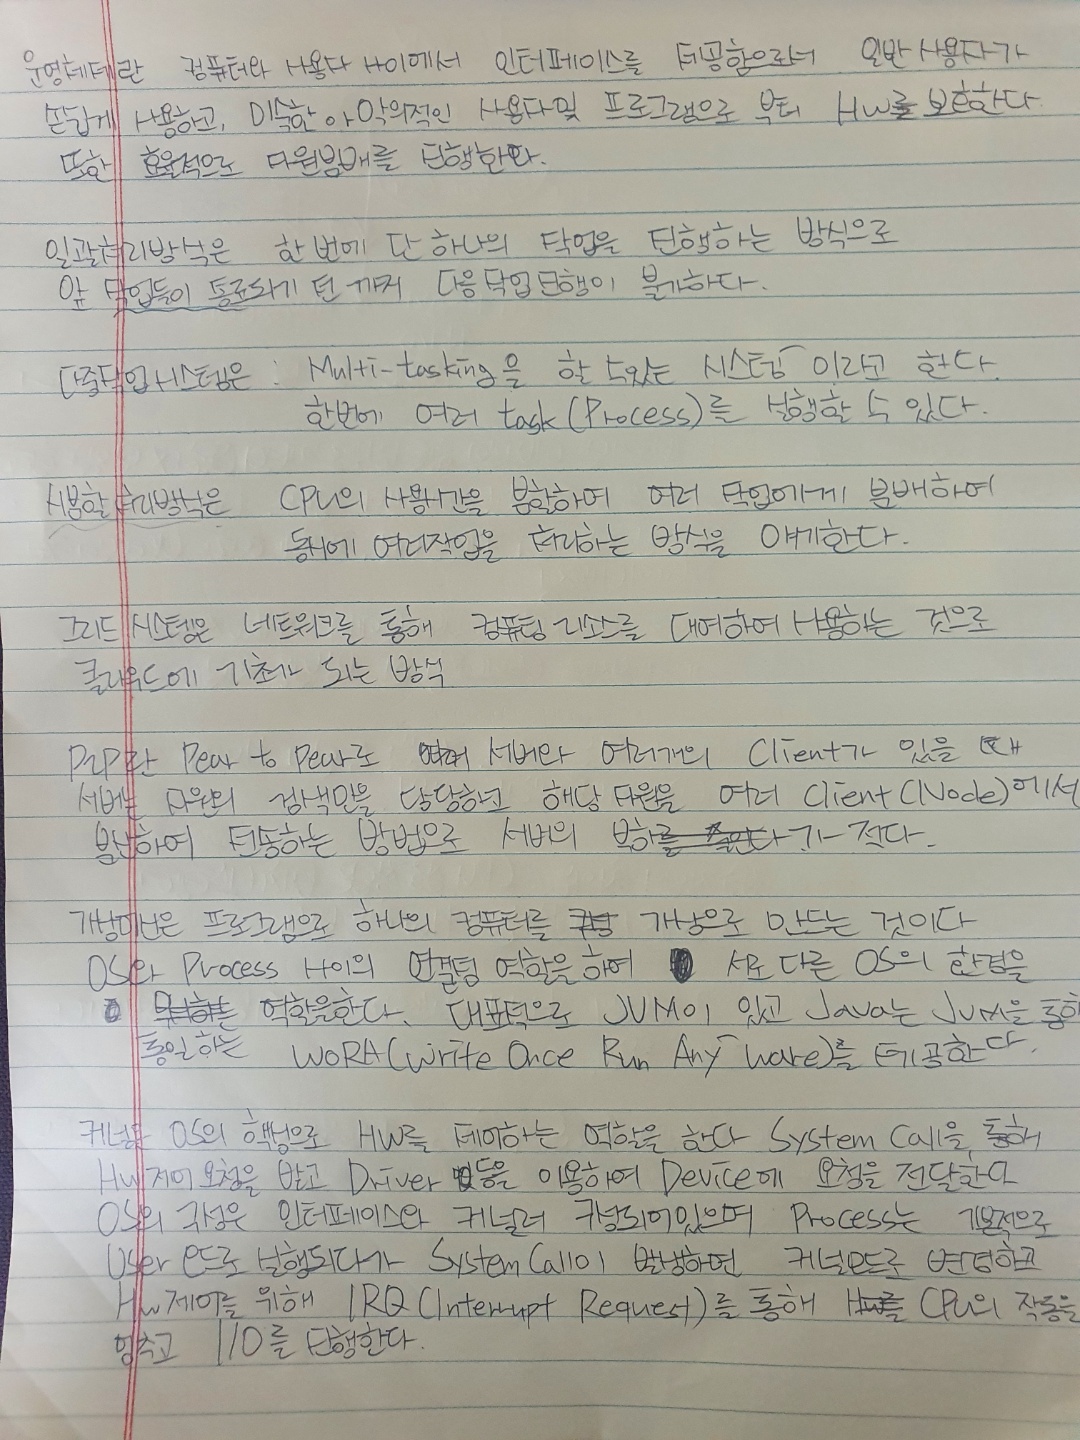 운영체제란 컴퓨터와 사용자 사이에서 인터페이스를 제공함으로서 일반 사용자가
손쉽게 사용하고, 미숙한 or 악의적인 사용자 및 프로그램으로 부터 HW를 보호한다.
또한 효율적으로 자원분배를 진행한다.
일괄처리방식은 한 번에 단 하나의 작업을 진행하는 방식으로
앞 작업들이 종료되기 전 까지 다음 작업 진행이 불가하다.
다중작업 시스템은 : Multi-tasking을 할 수 있는 시스템 이라고 한다.
한번에 여러 task(Process)를 실행할 수 있다.
시분할 처리방식은 CPU의 사용시간을 분할하여 여러 작업에게 분배하여
동시에 여러작업을 처리하는 방식을 얘기한다.
그리드 시스템은 네트워크를 통해 컴퓨팅 리소스를 대여하여 사용하는 것으로
클라우드에 기초가 되는 방식
P2P란 Pear to Pear로 서버와 여러개의 Client가 있을 때
서버는 자원의 검색만을 담당하고 해당 자원을 여러 Client(Node)에서
분산하여 전송하는 방법으로 서버의 부하가 적다.
가상머신은 프로그램으로 하나의 컴퓨터를 가상으로 만드는 것이다
OS와 Process 사이의 연결점 역할을 하여 서로 다른 OS의 환경을
통일하는 역할을한다. 대표적으로 JVM이 있고 Java는 JVM을 통해
WORA(Write Once Run Any ware)를 제공한다.
커널은 OS의 핵심으로 HW를 제어하는 역할을 한다 System Call을 통해
HW제어 요청을 받고 Driver 등을 이용하여 Device에 요청을 전달한다
OS의 구성은 인터페이스와 커널로 구성되어있으며 Process는 기본적으로
User 모드로 실행되다가 System Call이 발생하면 커널모드로 변경하고
HW제어를 위해 IRQ(Interrupt Request)를 통해 CPU의 작동을
멈추고 I/O를 진행한다.